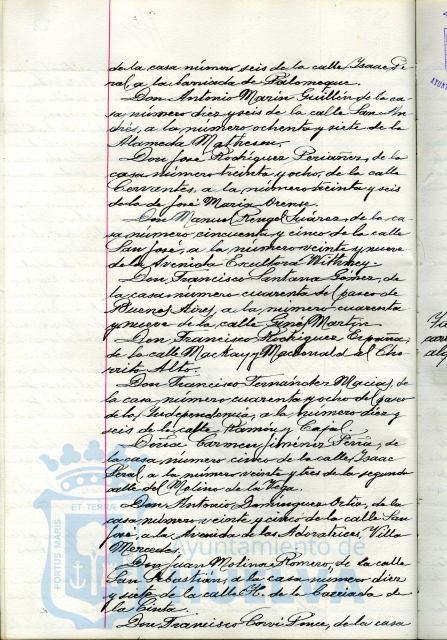 de la casa número seis de la calle Isaac Pe-
ral, a la barriada de Palomeque.
Don Antonio Marín Guillén de la ca-
sa número diez y seis de la calle San An-
drés, a la número ochenta y siete de la
Alameda Matheson.
Don José Rodríguez Periañez, de la
casa número treinta y ocho, de la calle
Cervantes, a la número treinta y seis
de la de José María Orense.
Don Manuel Rengel Suárez, de la ca-
sa número cincuenta y cinco de la calle
San José, a la número veinte y nueve
de la Avenida Escultora Withney.
Don Francisco Santana Gómez, de
la casa número cuarenta del paseo de
Buenos Aires, a la número cuarenta
y nueve de la calle Ginés Martín.
Don Francisco Rodríguez España,
de la calle Mackay y Macdonald al Cho-
rrito Alto.
Don Francisco Fernández Macías, de
la casa número cuarenta y ocho del paseo
de la Independencia, a la número diez y
seis de la calle Ramón y Cajal.
Doña Carmen Jiménez Peña, de
la casa número cinco de la calle Isaac
Peral, a la número veinte y tres de la segunda
calle del Molino de la Vega.
Don Antonio Domínguez Ortiz, de la
casa número veinte y cinco de la calle San
José, a la Avenida de las Adoratrices, Villa
Mercedes.
Don Juan Molina Romero, de la calle
San Sebastián, a la casa número diez
y siete de la calle H. de la Barriada de
la Cinta.
Don Francisco Corvi Ponce, de la casa
ET TERRA
PORTUS MARIS
Ayuntamiento de
HUELVA